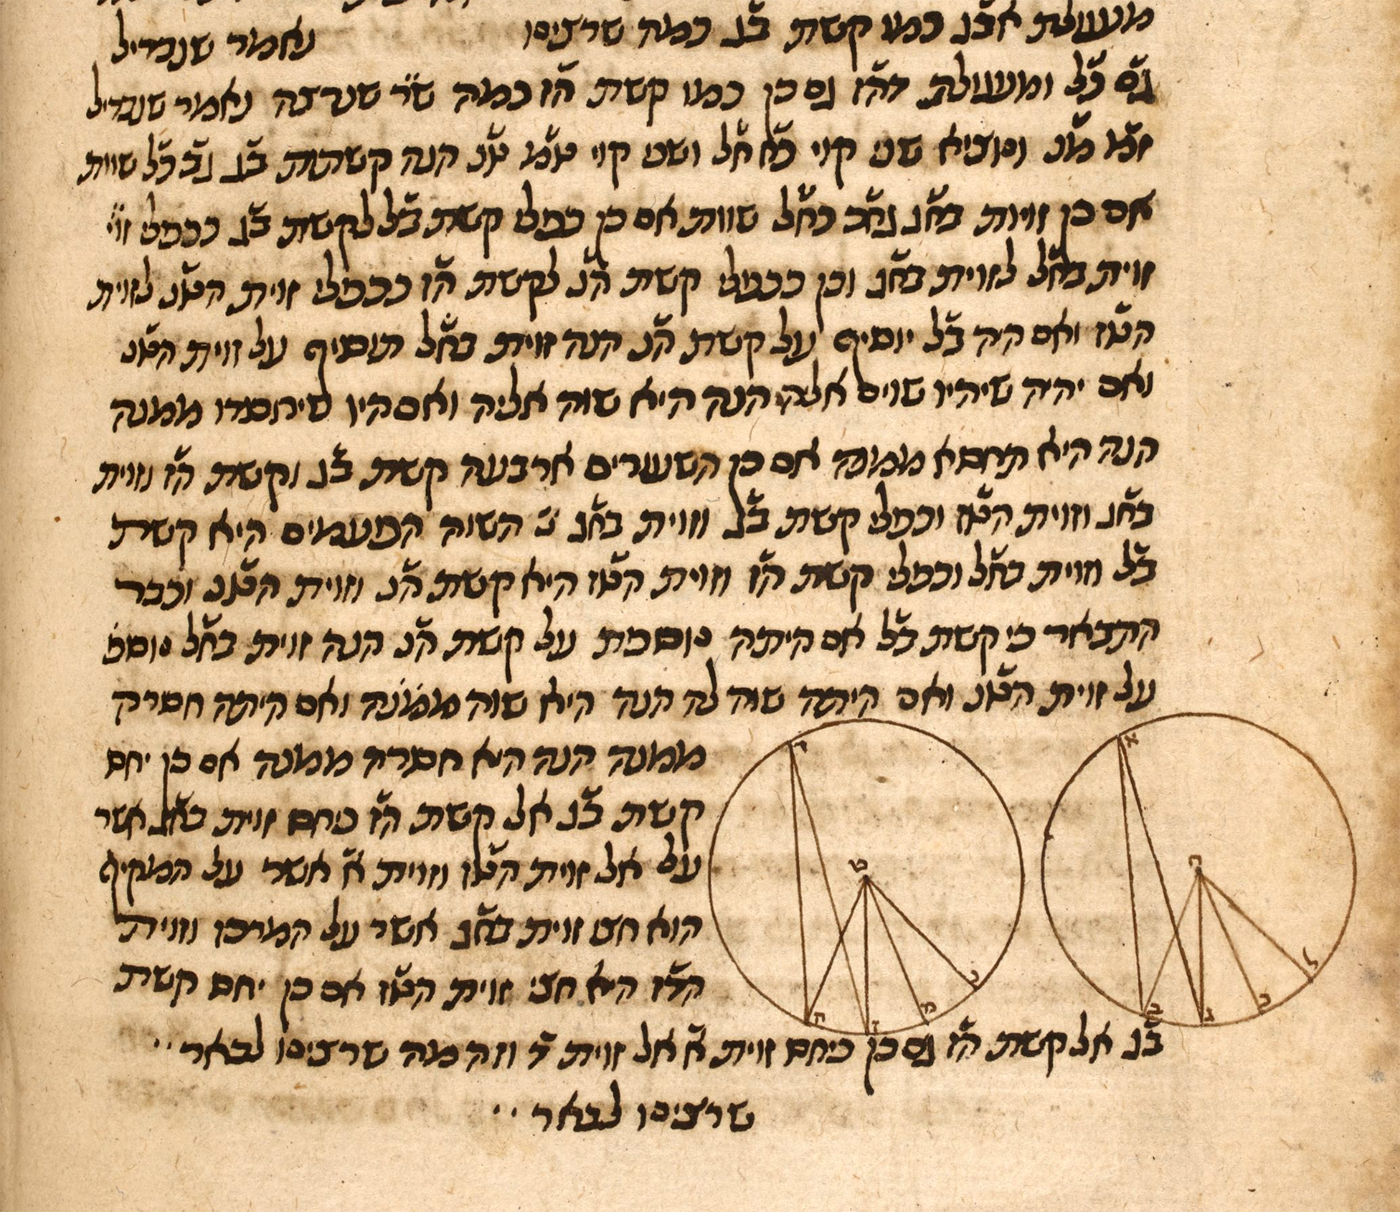 מעגולת אבג כמו קשת בג כמה שרצינו נאמר שנבדיל
גם כל ומעגולת דהז גם כן כמו קשת הז כמה ש"ר שנרצה נאמר שנבדיל
זמ מנ ונוציא שני קוי כח חל ושני קוי טמ טנ הנה קשתות בג גכ כל שוות
אם כן זויות בחג גחכ כחל שוות אם כן כפלי קשת בל לקשת בג ככפלי
זוית בחל לזוית בחג וכן ככפלי קשת הנ לקשת הז ככפלי זוית הטנ לזוית
הטז ואם היה בל יוסיף על קשת הנ הנה זוית בחל תוסיף על זוית הטנ
ואם יהיה שיהיו שוים אלה הנה היא שוה אליה ואם היו שיחסרו ממנה
הנה היא תחסר ממנה אם כן השעורים ארבעה קשת בג וקשת הז וזוית
בחג וזוית הטז וכפלי קשת בג וזוית בחג השוה הפעמים היא קשת
בל וזוית בחל וכפלי קשת הז וזוית הטז היא קשת הנ וזוית הטנ וכבר
התבאר כי קשת בל אם היתה נוספת על קשת הנ הנה זוית בחל נוספ
על זוית הטנ ואם היתה שוה לה הנה היא שוה ממנה ואם היתה חסרה
ממנה הנה היא חסרה ממנה אם כן יחס
קשת בג אל קשת הז כיחס זוית בחג אשר
על אל זוית הטז וזוית א אשר על המקיף
הוא חצי זוית בחג אשר על המרכז וזוית
הדז היא חצי זוית הטז אם כן יחס קשת
בג אל קשת הז גם כן כיחס זוית א אל זוית ד וזה מה שרצינו לבאר
שרצינו לבאר
ד
ט
ה
ז
מ
נ
א
ח
ב
ג
כ
ל